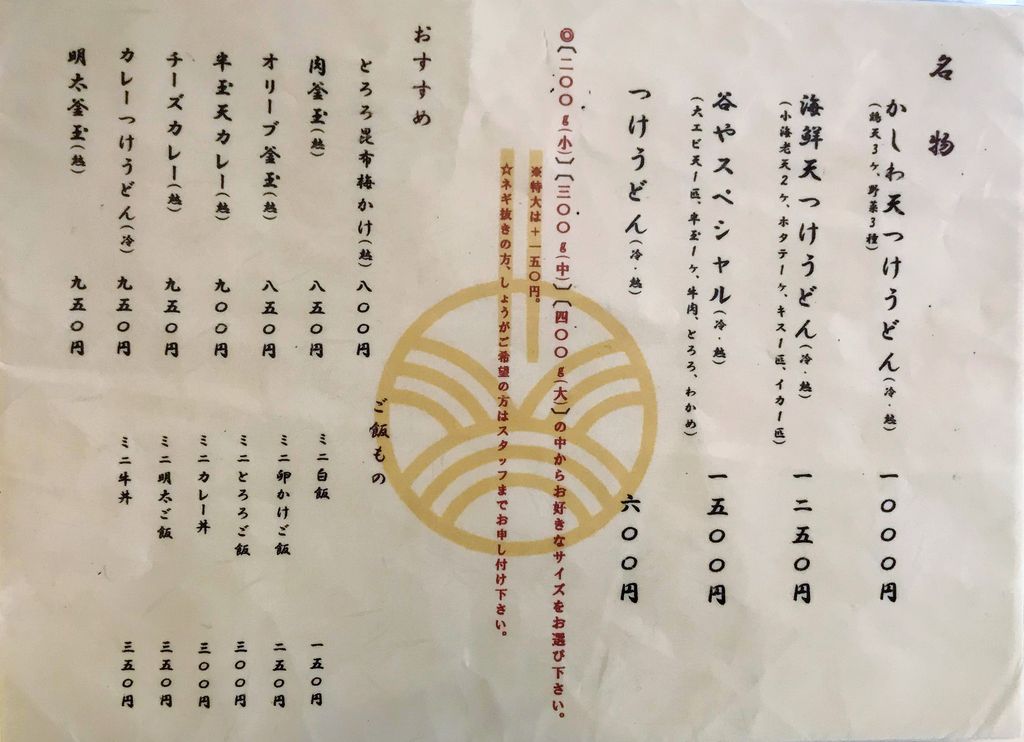 名物
かしわ天つけうどん(冷・熱) 一〇〇〇円
(鶏天3ヶ、野菜3種)
海鮮天つけうどん(冷・熱) 一二五〇円
(小海老天2ヶ、ホタテ一ヶ、キス一匹、イカ一匹)
谷やスペシャル(冷・熱) 一五〇〇円
(大エビ天一匹、半玉一ヶ、牛肉、とろろ、わかめ)
つけうどん(冷・熱) 六〇〇円
◎〔二〇〇g(小)〕〔三〇〇g(中)〕〔四〇〇g(大)〕の中からお好きなサイズをお選び下さい。
※特大は+一五〇円。
☆ネギ抜きの方、しょうがご希望の方はスタッフまでお申し付け下さい。
おすすめ
とろろ昆布梅かけ(熱) 八〇〇円
肉釜玉(熱) 八五〇円
オリーブ釜玉(熱) 八五〇円
半玉天カレー(熱) 九〇〇円
チーズカレー(熱) 九五〇円
カレーつけうどん(冷) 九五〇円
明太釜玉(熱) 九五〇円
ご飯もの
ミニ白飯 一五〇円
ミニ卵かけご飯 二五〇円
ミニとろろご飯 三〇〇円
ミニカレー丼 三〇〇円
ミニ明太ご飯 三五〇円
ミニ牛丼 三五〇円